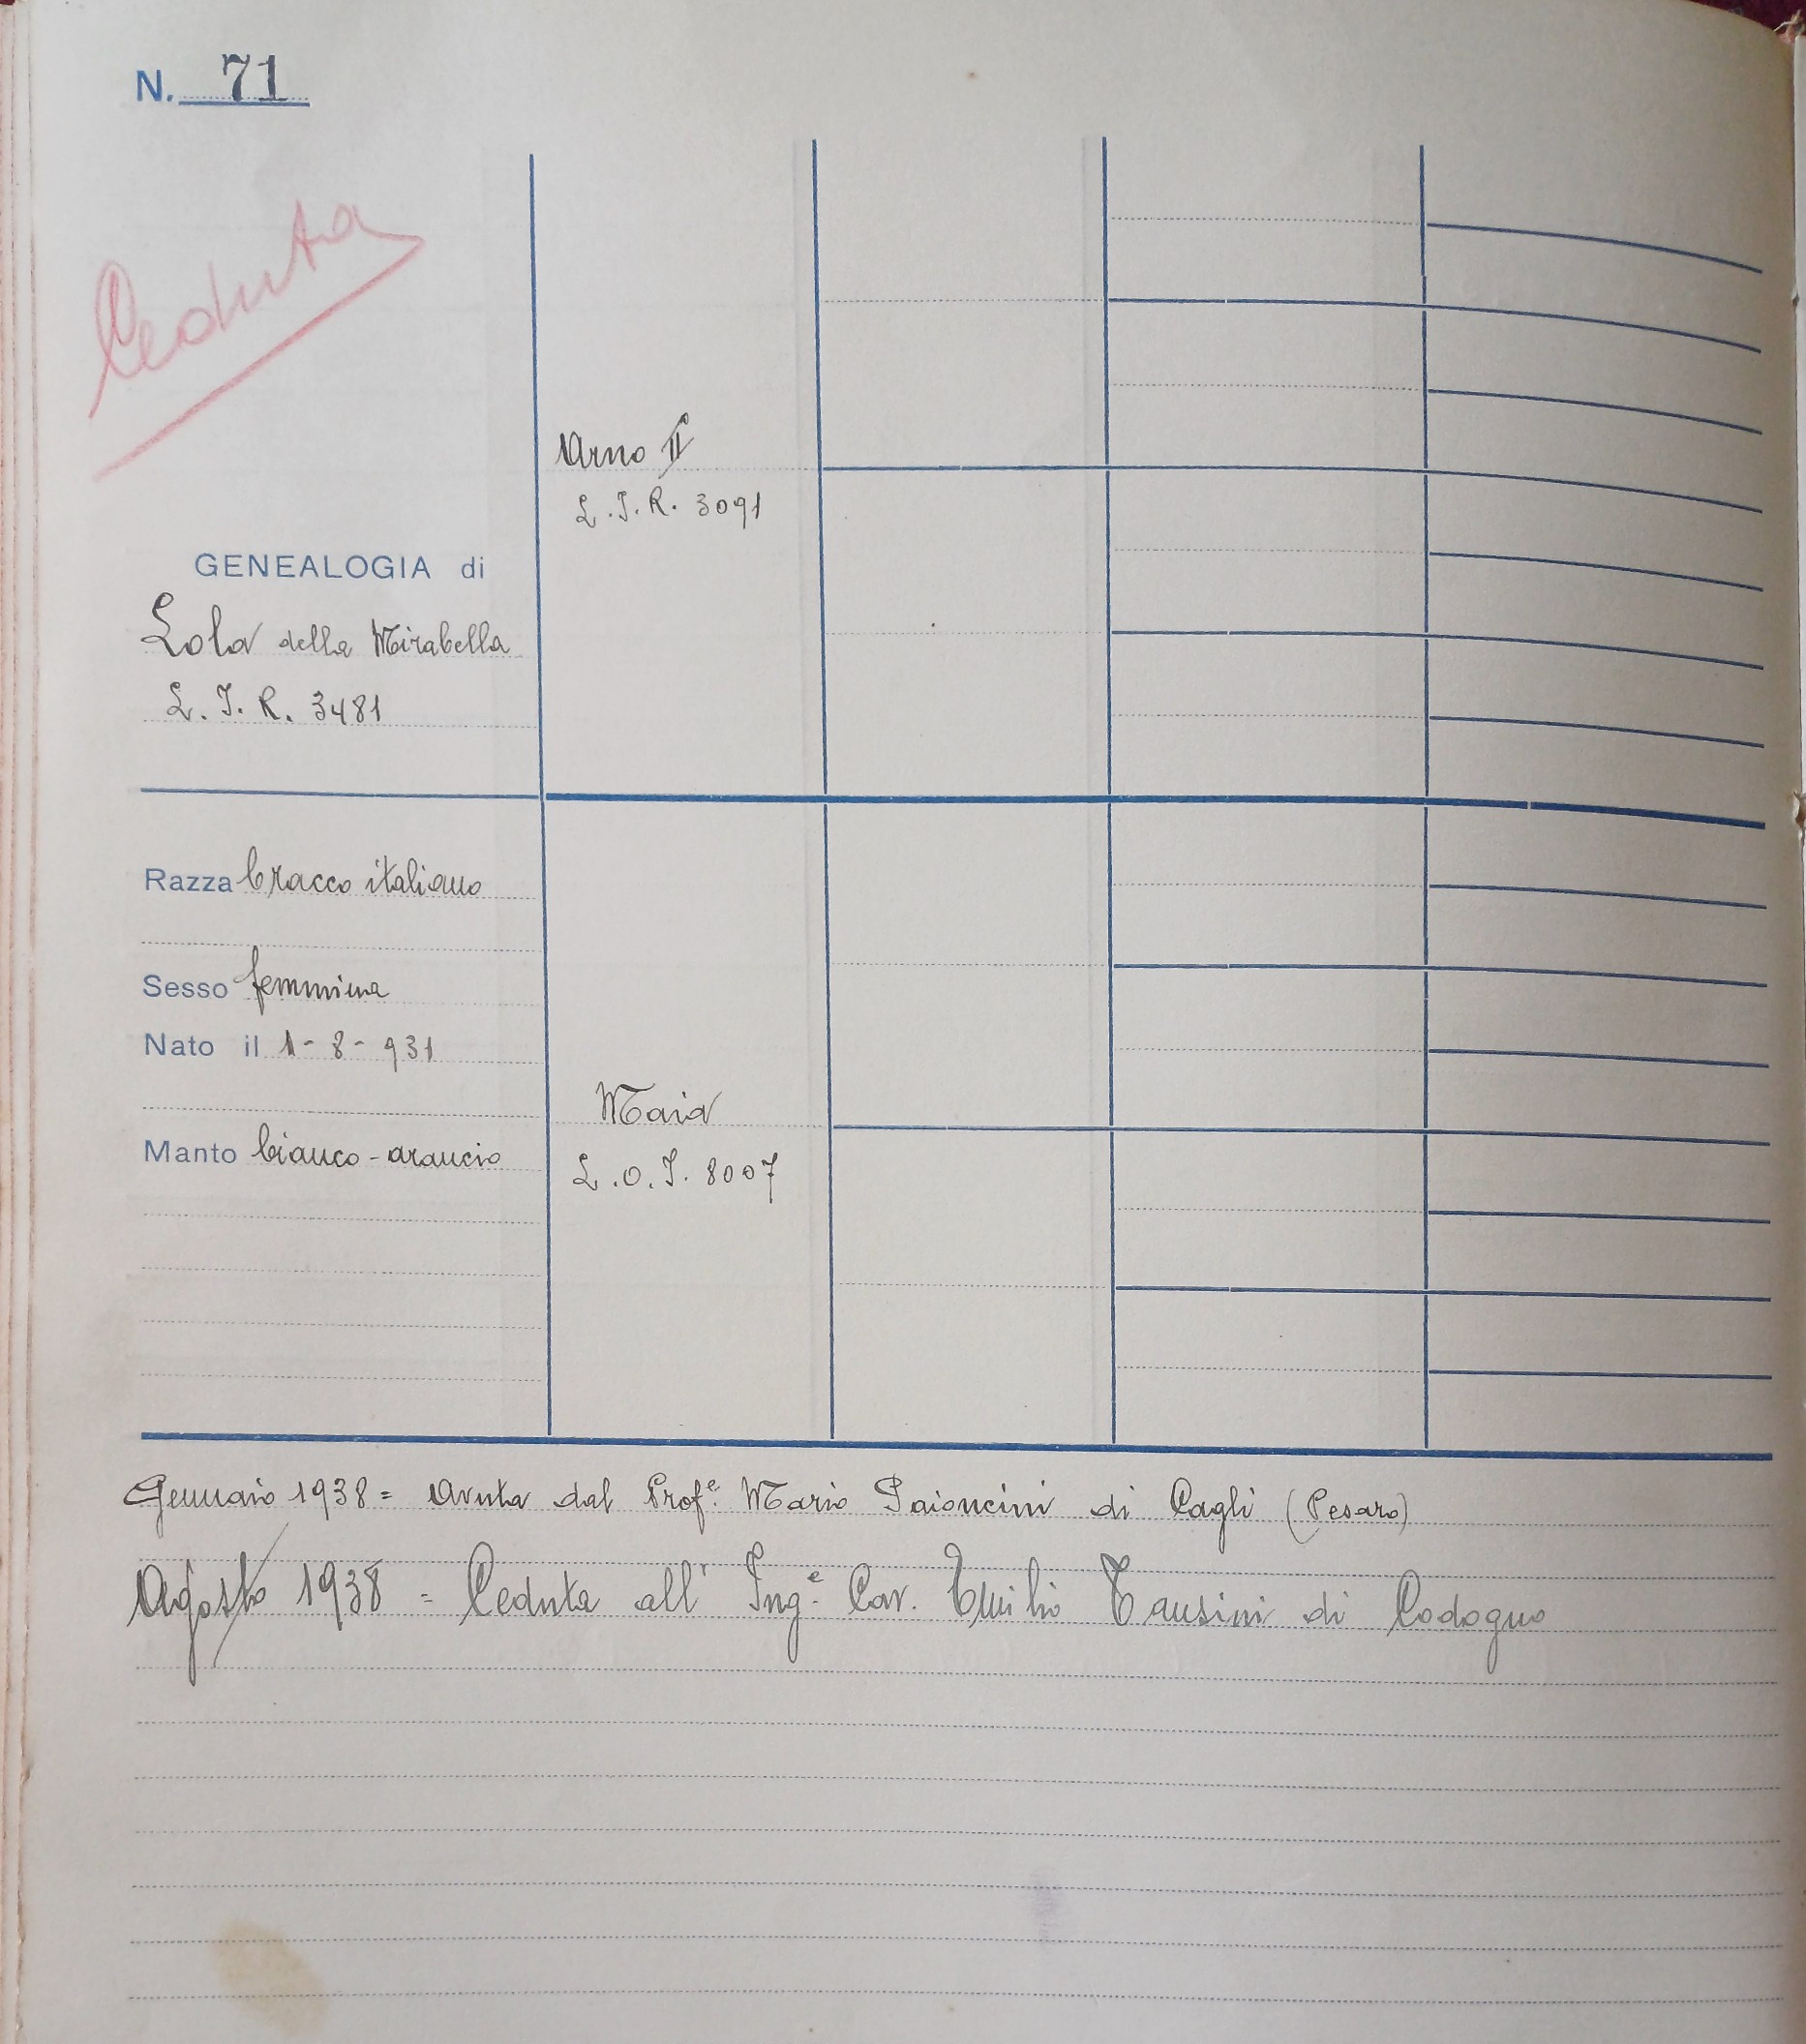 N. 71
Ceduta
Arno II
L.I.R. 3091
GENEALOGIA di
Lola della Mirabella
L.I.R. 3481
Razza bracco italiano
Sesso femmina
Nato il 1-8-931
Maia
Manto bianco-arancio
L.O.I. 8007
Gennaio 1938 = Avuta dal Prof.e Mario di Cagli (Pesaro)
Agosto 1938 = Ceduta all' Ing.e Cav. Emilio di Codogno